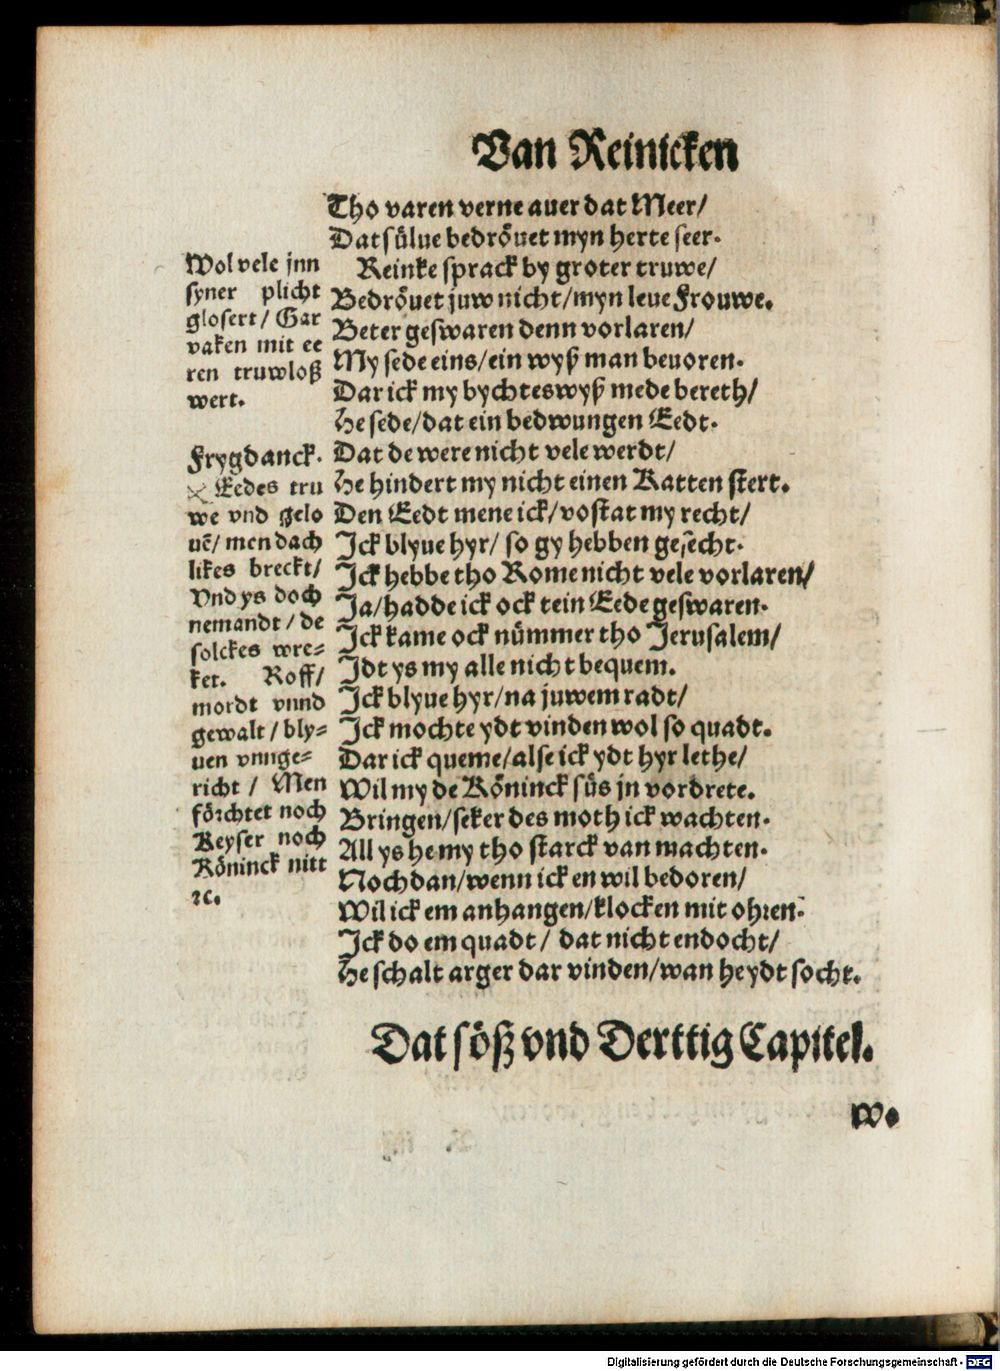 Van Reinicken
Tho varen verne auer dat Meer/
Dat sülue bedröuet myn herte seer.
Reinke sprack by groter truwe/
Bedröuet juw nicht/myn leue Frouwe.
Beter geswaren denn vorlaren/
My sede eins/ein wyß man beuoren.
Dar ick my bychteswyß mede bereth/
He sede/dat ein bedwungen Eedt.
Dat de were nicht vele werdt/
He hindert my nicht einen Katten stert.
Den Eedt mene ick/vostat my recht/
Ick blyue hyr/ so gy hebben gesecht.
Ick hebbe tho Rome nicht vele vorlaren/
Ja/hadde ick ock tein Eede geswaren.
Ick kame ock nümmer tho Jerusalem/
Idt ys my alle nicht bequem.
Ick blyue hyr/na juwem radt/
Ick mochte ydt vinden wol so quadt.
Dar ick queme/alse ick ydt hyr lethe/
Wil my de Köninck süs jn vordrete.
Bringen/seker des moth ick wachten.
All ys he my tho starck van machten.
Nochdan/wenn ick en wil bedoren/
Wil ick em anhangen/klocken mit ohren.
Ick do em quadt/ dat nicht endocht/
He schalt arger dar vinden/wan he ydt socht.
Wol vele jnn
syner plicht
glosert/ Gar
vaken mit ee
ren truwloß
wert.
Frygdanck.
Eedes tru
we vnd gelo
uē/ men dach
likes breckt/
Vnd ys doch
nemandt/ de
solckes wre-
ket. Roff/
mordt vnnd
gewalt/ bly-
uen vnnge-
richt/ Men
förchtet noch
Keyser noch
Köninck nitt
ꝛc.
Dat söß vnd Derttig Capitel.
W.
Digitalisierung gefördert durch die Deutsche Forschungsgemeinschaft - DFG